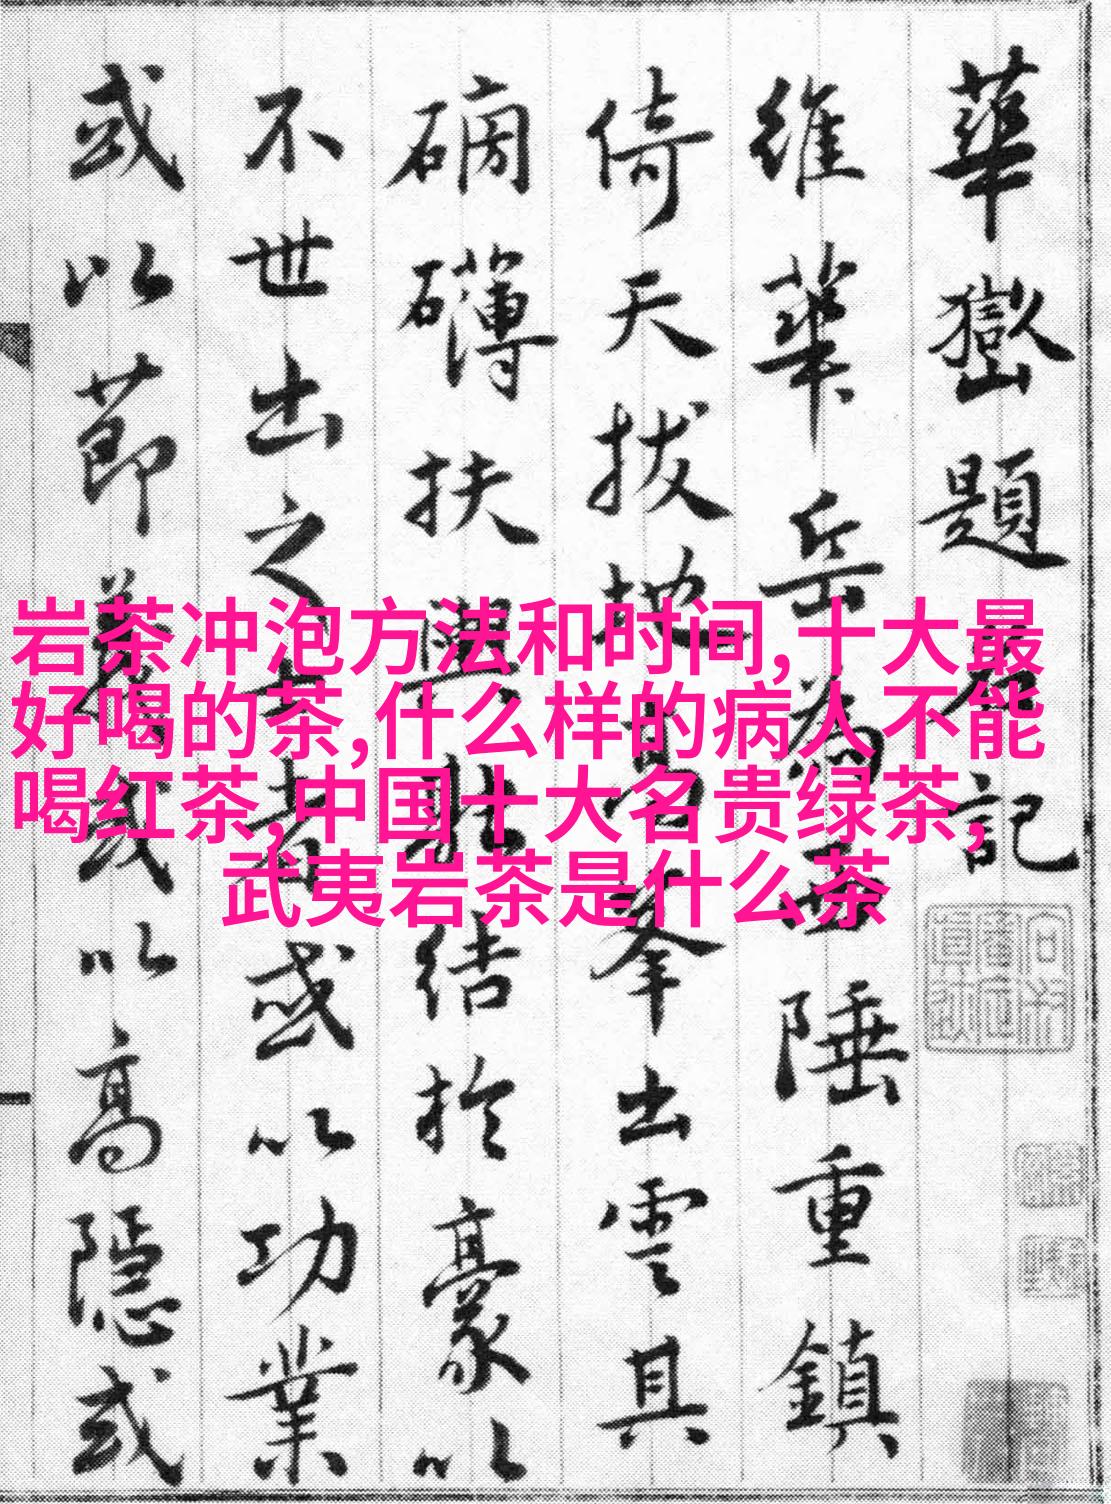 華嶽題名記
維華岳為西陲重鎮
倚天拔地高峯出雲其
磅礴扶輿壯結於豪以
不世出之士者或以功業
或以節義或以高隱或
岩茶冲泡方法和时间,十大最
好喝的茶,什么样的病人不能
喝红茶,中国十大名贵绿茶,
武夷岩茶是什么茶